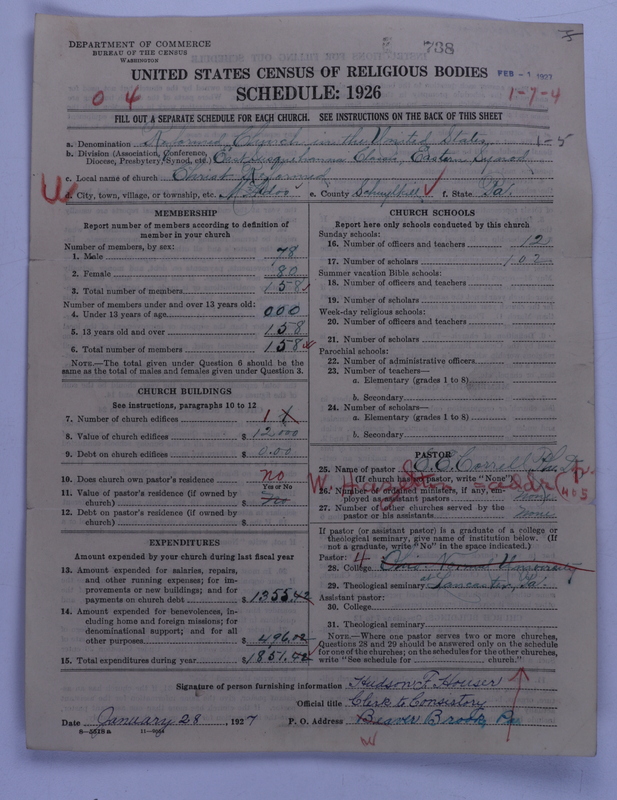 DEPARTMENT OF COMMERCE
BUREAU OF THE CENSUS
WASHINGTON
738
UNITED STATES CENSUS OF RELIGIOUS BODIES
FEB - 1 1927
SCHEDULE: 1926
0 4
1-7-4
FILL OUT A SEPARATE SCHEDULE FOR EACH CHURCH. SEE INSTRUCTIONS ON THE BACK OF THIS SHEET
a. Denomination Reformed Church in the United States 1-5
b. Division (Association, Conference, Diocese, Presbytery, Synod, etc.) East Susquehanna Classis, Eastern Synod
c. Local name of church Christ Reformed
d. City, town, village, or township, etc. McAdoo e. County Schuylkill f. State Pa.
MEMBERSHIP
Report number of members according to definition of
member in your church
Number of members, by sex:
1. Male 78
2. Female 80
3. Total number of members 158
Number of members under and over 13 years old:
4. Under 13 years of age 000
5. 13 years old and over 158
6. Total number of members 158
NOTE.—The total given under Question 6 should be the
same as the total of males and females given under Question 3.
CHURCH BUILDINGS
See instructions, paragraphs 10 to 12
7. Number of church edifices 1
8. Value of church edifices $ 12000
9. Debt on church edifices $ 0.00
10. Does church own pastor's residence? no
Yes or No
11. Value of pastor's residence (if owned by
church) $
12. Debt on pastor's residence (if owned by
church) $
EXPENDITURES
Amount expended by your church during last fiscal year
13. Amount expended for salaries, repairs,
and other running expenses; for im-
provements or new buildings; and for
payments on church debt $ 1355.42
14. Amount expended for benevolences, in-
cluding home and foreign missions; for
denominational support; and for all
other purposes $ 496.02
15. Total expenditures during year $
CHURCH SCHOOLS
Report here only schools conducted by this church
Sunday schools:
16. Number of officers and teachers 12
17. Number of scholars 102
Summer vacation Bible schools:
18. Number of officers and teachers
19. Number of scholars
Week-day religious schools:
20. Number of officers and teachers
21. Number of scholars
Parochial schools:
22. Number of administrative officers
23. Number of teachers—
a. Elementary (grades 1 to 8)
b. Secondary
24. Number of scholars—
a. Elementary (grades 1 to 8)
b. Secondary
PASTOR
25. Name of pastor
(If church has no pastor, write "None")
26. Number of ordained ministers, if any, em-
ployed as assistant pastors none
27. Number of other churches served by the
pastor or his assistants none
If pastor (or assistant pastor) is a graduate of a college or
theological seminary, give name of institution below. (If
not a graduate, write "No" in the space indicated.)
Pastor:
28. College Ohio Normal University
29. Theological seminary at Lancaster, Pa.
Assistant pastor:
30. College
31. Theological seminary
NOTE.—Where one pastor serves two or more churches,
Questions 28 and 29 should be answered only on the schedule
for one of the churches; on the schedules for the other churches,
write "See schedule for church."
Signature of person furnishing information Hudson F. Houser
Official title Clerk to Consistory
Date January 28, 1927 P. O. Address Beaver Brook, Pa